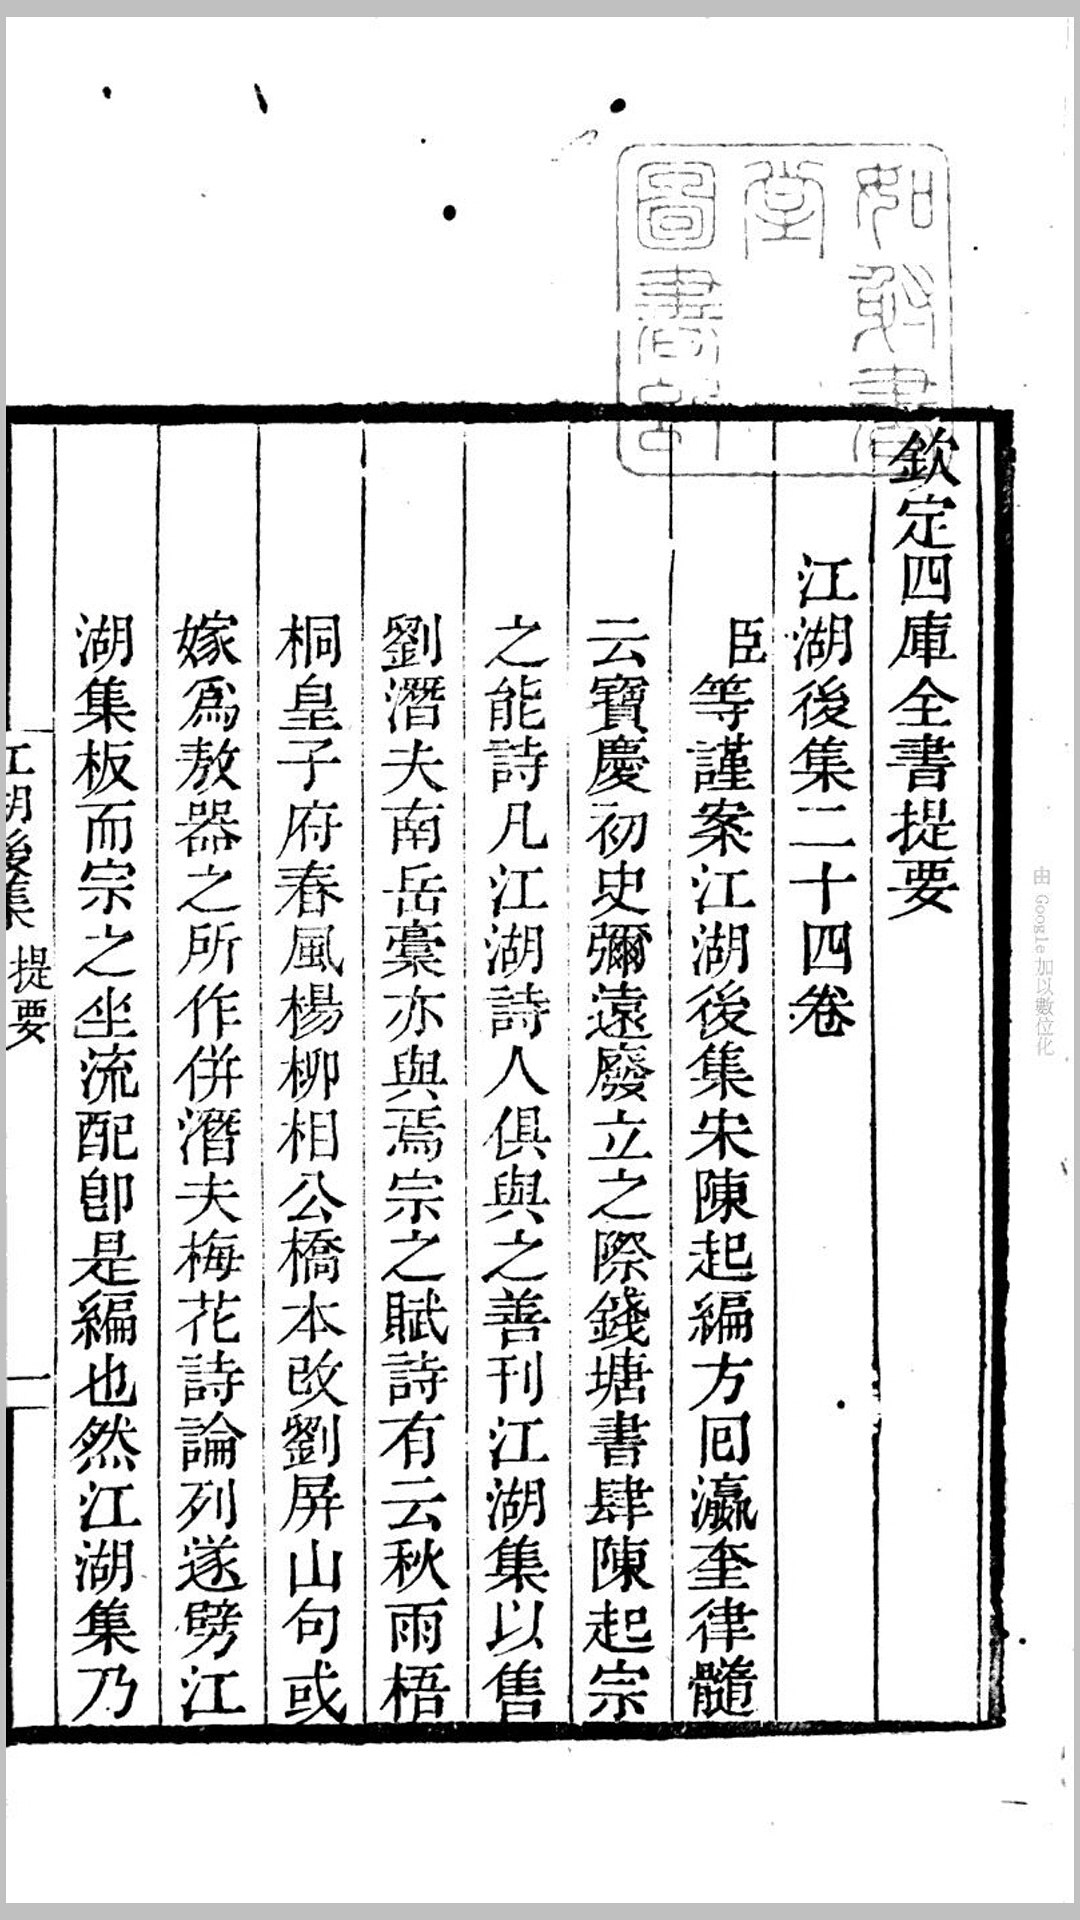 欽定四庫全書提要
江湖後集二十四卷
臣等謹案江湖後集宋陳起編方回瀛奎律髓
云寶慶初史彌遠廢立之際錢塘書肆陳起宗
之能詩凡江湖詩人俱與之善刊江湖集以售
劉潛夫南岳稾亦與焉宗之賦詩有云秋雨梧
桐皇子府春風楊柳相公橋本改劉屏山句或
嫁爲敖器之所作併潛夫梅花詩論列遂劈江
湖集板而宗之坐流配卽是編也然江湖集乃
江湖後集 提要 一
如
堂
圖書
由 Google 加以數位化